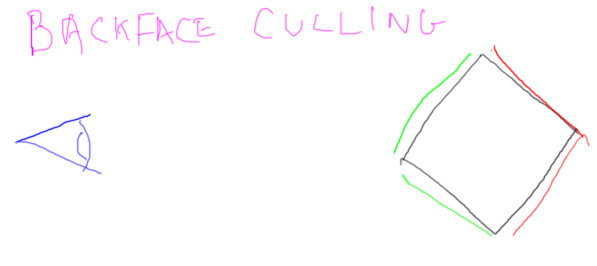 BACKFACE CULLING